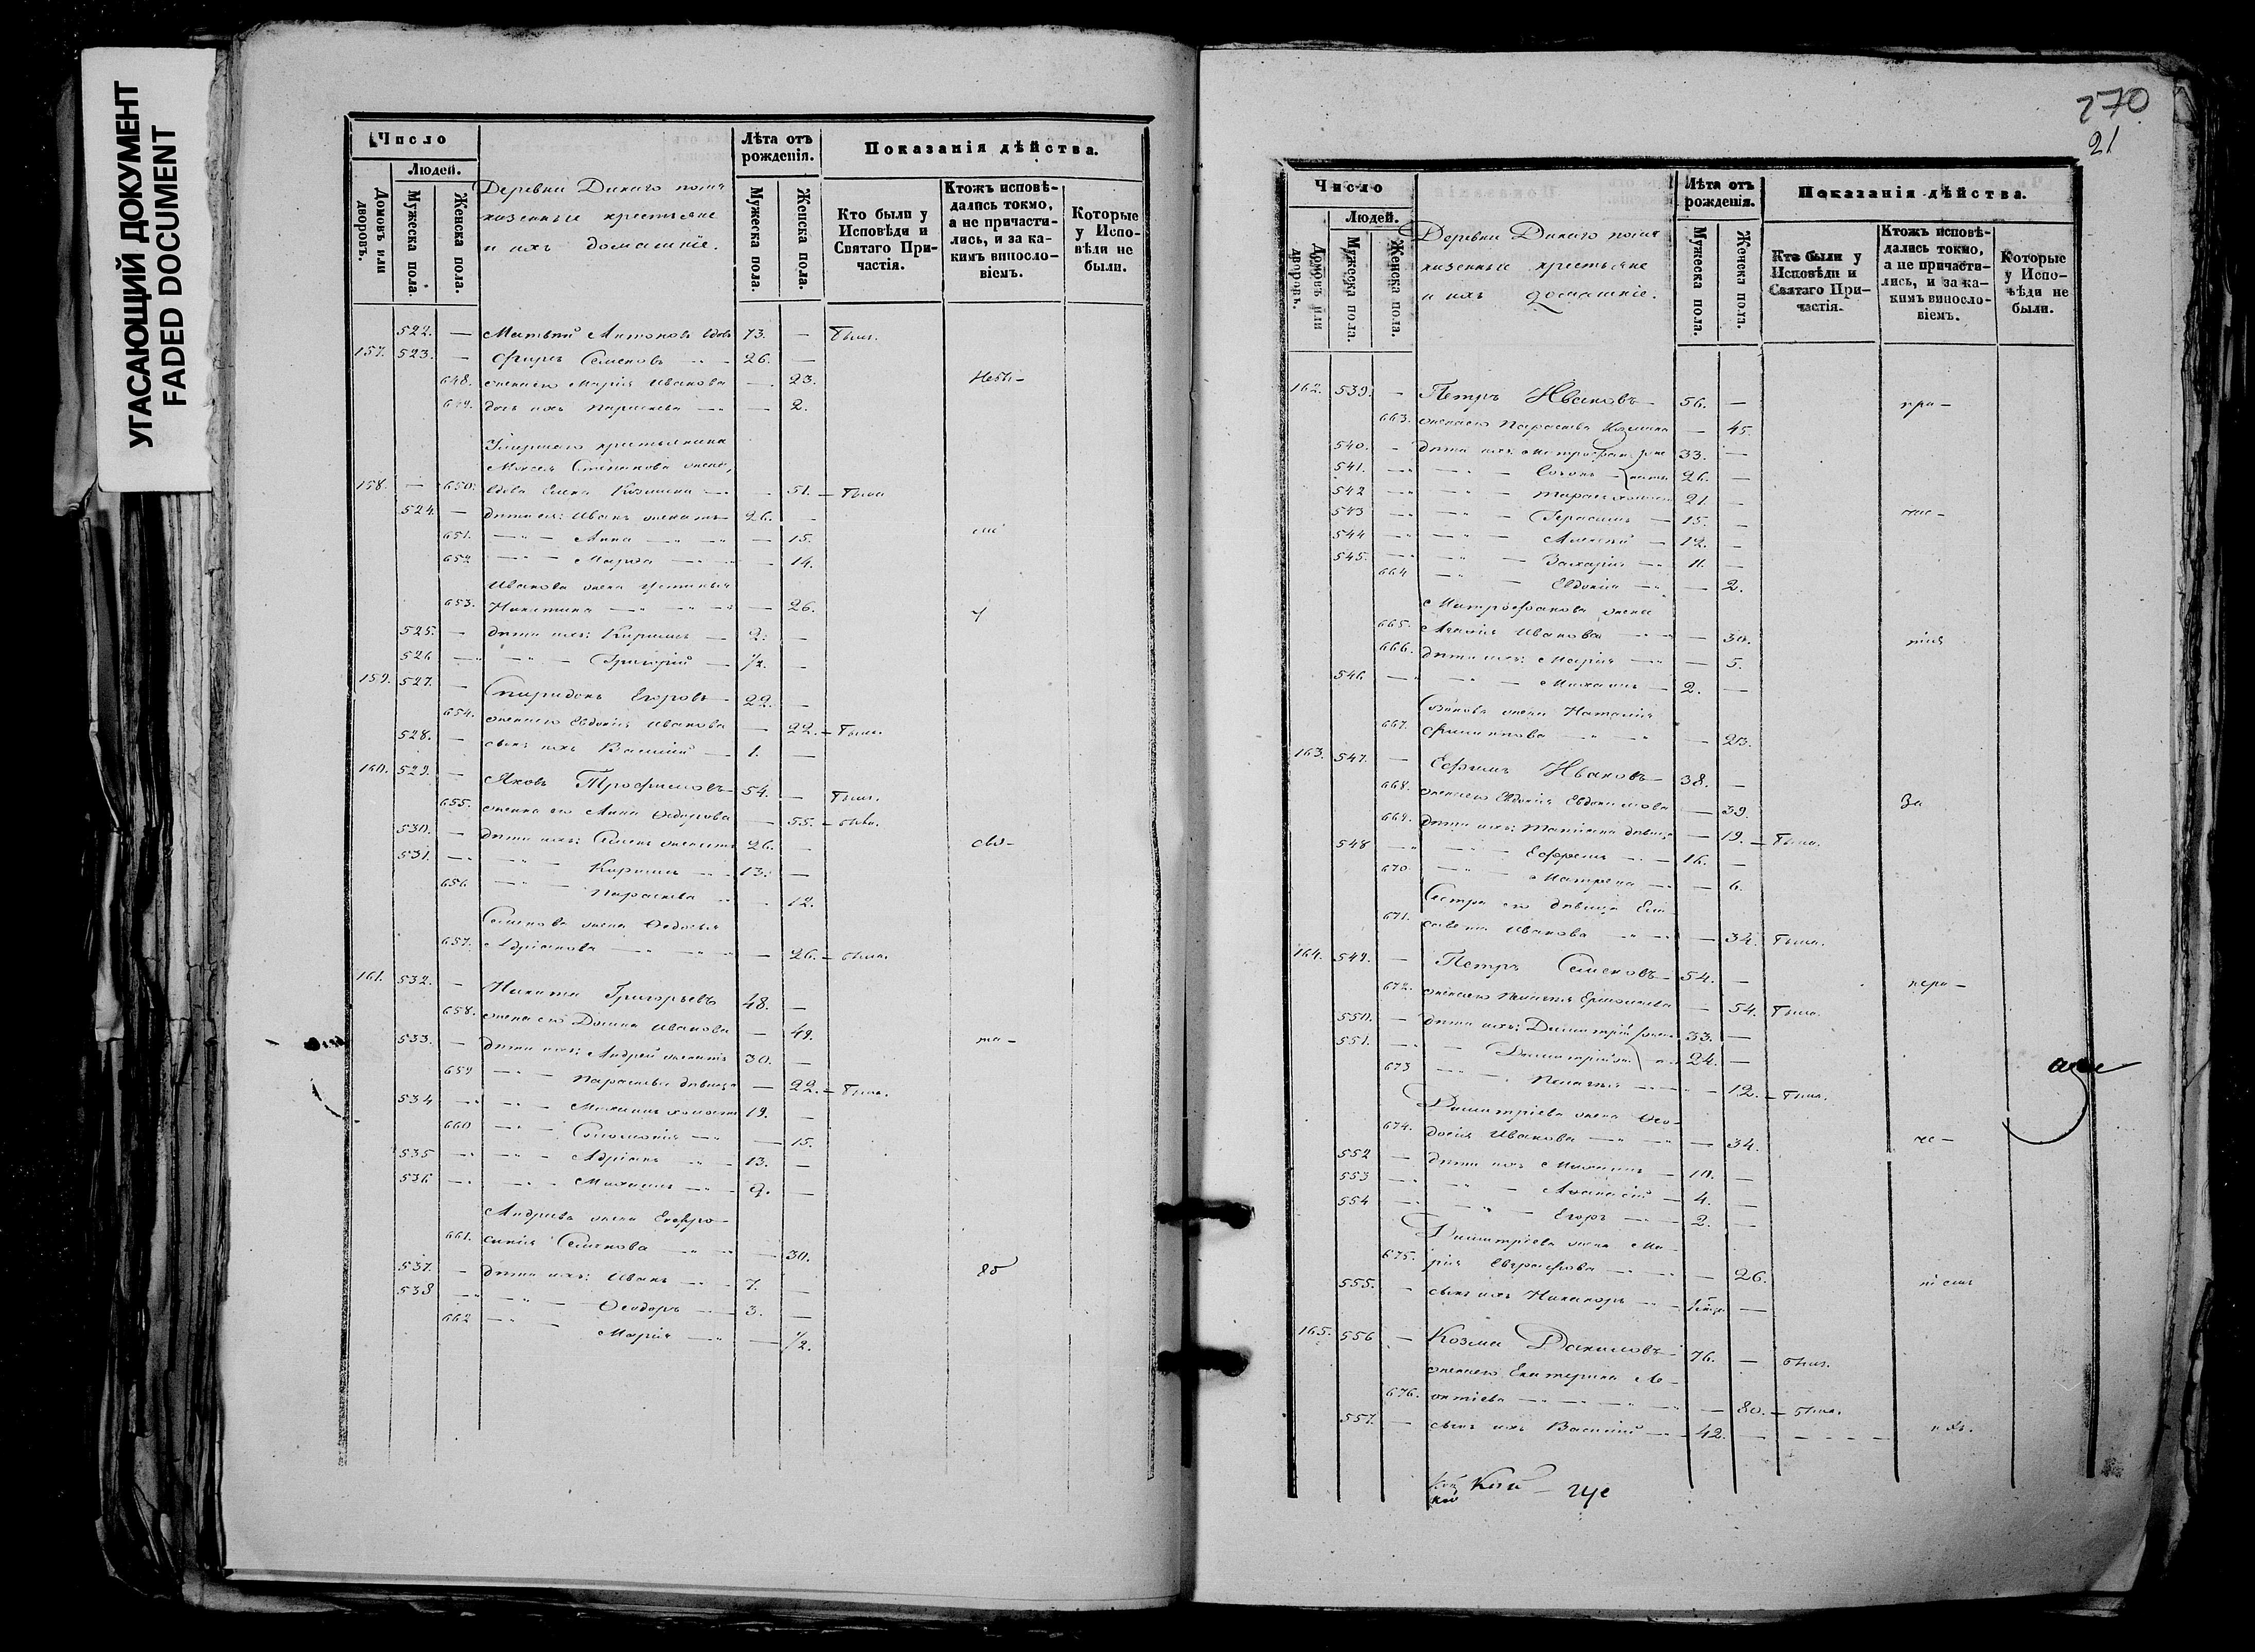 УГАСАЮЩИЙ ДОКУМЕНТ
FADED DOCUMENT
Число
Людей.
Домовъ или дворовъ.
Мужеска пола.
Женска пола.
Деревни Дикаго поля
казенные крестьяне
и ихъ домашніе.
Лѣта отъ рожденія.
Мужеска пола.
Женска пола.
Показанія дѣйства.
Кто были у Исповѣди и Святаго Причастія.
Ктожъ исповѣдались токмо, а не причастились, и за какимъ винословіемъ.
Которые у Исповѣди не были.
522. — Матвѣй Антоновъ вдовъ 73. — Былъ.
157. 523. — Семеновъ — 26. —
648. жена его Марія Иванова — 23.
649. дочь ихъ Параскева — 2.
Умершаго крестьянина
Моисея Степанова жена,
158. — 650. вдова Елена Козмина — 51. — Была
524. — дѣти ея: Иванъ женатъ 26. —
651. — Анна — 15.
652 — Марѳа — 14.
Иванова жена Устинья
653. Никитина — 26.
525. — дѣти ихъ: Кириллъ — 2. —
526 — Григорій — 1/2. —
159. 527. — Спиридонъ Егоровъ — 22. —
654. жена его Евдокія Иванова — 22. — Была.
528. — сынъ ихъ Василій — 1. —
160. 529. — Яковъ Трофимовъ — 54. — Былъ.
655. жена его Анна Ѳедорова — 55. — была.
530. — дѣти ихъ: Семенъ женатъ 26. —
531. — Кириллъ — 13. —
656 — Параскева — 12.
Семенова жена Ѳедосья
657. Адріанова — 26. — была.
161. 532. — Никита Григорьевъ 48. —
658. жена его Домна Иванова — 49.
533. — дѣти ихъ: Андрей женатъ 30. —
659 — Параскева дѣвица — 22. — Была.
534 — Михаилъ холост 19. —
660 — Соломонія — 15.
535 — Адріанъ — 13. —
536 — Михаилъ — 9. —
Андреева жена Евфро-
661. синія Семенова — 30.
537. — дѣти ихъ: Иванъ — 7. —
538 — Ѳеодоръ — 3. —
662 — Марія — 1/2.
270
21
Число
Людей.
Домовъ или дворовъ.
Мужеска пола.
Женска пола.
Деревни Дикаго поля
казенные крестьяне
и ихъ домашніе.
Лѣта отъ рожденія.
Мужеска пола.
Женска пола.
Показанія дѣйства.
Кто были у Исповѣди и Святаго Причастія.
Ктожъ исповѣдались токмо, а не причастились, и за какимъ винословіемъ.
Которые у Исповѣди не были.
162. 539. — Петръ Ивановъ — 56. —
663. жена его Параскева Козмина — 45.
540. — дѣти ихъ: Митрофан же 33. —
541. — Созонъ наты 26. —
542 — Тарас холост 21. —
543 — Герасимъ — 15. —
544 — Алексѣй — 12. —
545. — Захарій — 11. —
664 — Евдокія — 2.
Митрофанова жена
665. Иванова — 30.
666. дѣти ихъ: Марія — 5.
546 — Михаилъ — 2. —
Созонова жена Наталія
667. Филиппова — 23.
163. 547. — Ефимъ Ивановъ — 38. —
668. жена его Евдокія Евдокимова — 39.
669. дѣти ихъ: Татіана дѣвица — 19. — Была.
548 — Ефремъ — 16. —
670 — Матрена — 6.
Сестра его дѣвица Ели-
671. савета Иванова — 34. Была.
164. 549. — Петръ Семеновъ — 54. —
672. жена его Пелагія Ермолаева — 54. Была.
550. — дѣти ихъ: Димитрій жен 33. —
551. — Димитрій 24. —
673 — Пелагія — 12. — Была.
Димитріева жена Ѳео-
674. досія Иванова — 34.
552 — дѣти ихъ Михаилъ — 10. —
553 — Аѳанасій — 4. —
554 — Егоръ — 2. —
Димитріева жена Ма-
675. рія Евграфова — 26.
555. — сынъ ихъ Никаноръ —
165. 556 — Козма Даниловъ — 76. — былъ.
жена его Екатерина Ле-
676. онтіева — 80. — была.
557. — сынъ ихъ Василій — 42. —